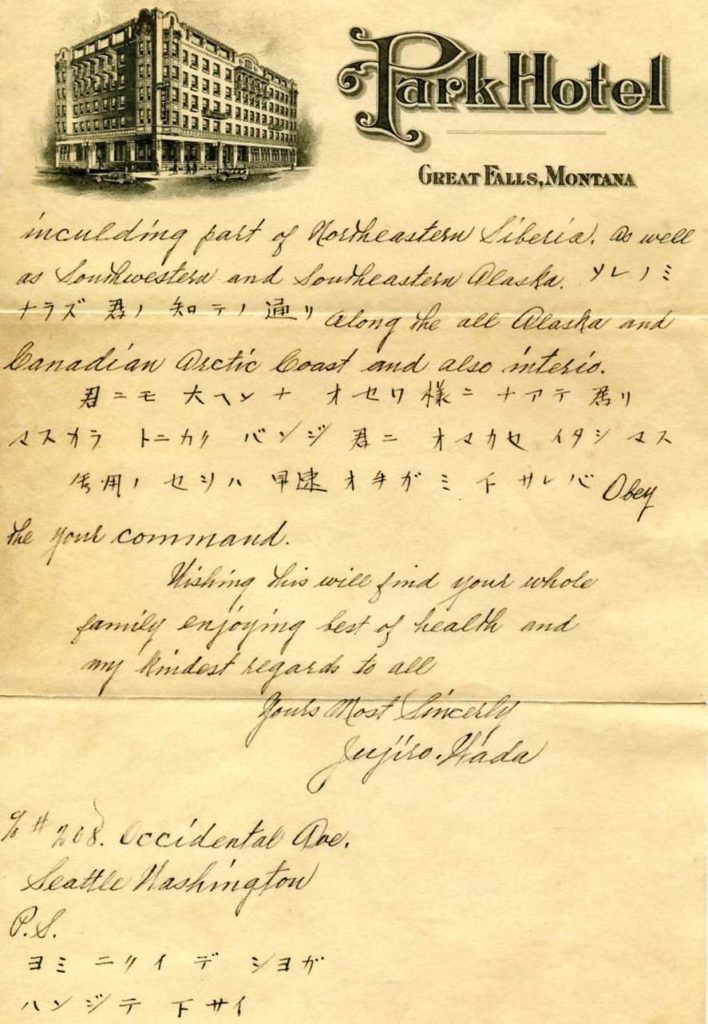 Park Hotel
GREAT FALLS, MONTANA
inculding part of Northeastern Siberia. as well
as Southwestern and Southeastern Alaska. ソレノミ
ナラズ 君ノ 知テノ 通リ Along the all Alaska and
Canadian Arctic Coast and also interio.
君ニモ 大ヘンナ オセワ 様ニ ナアテ 居リ
マスカラ トニカク バンジ 君ニ オマカセ イタシ マス
用ノ セツハ 早速 オテガミ 下サレバ Obey
the your command.
Wishing this will find your whole
family enjoying best of health and
my kindest regards to all
Yours Most Sincerly
Jujiro. Wada
% # 208. Occidental Ave.
Seattle Washington
P.S.
ヨミ ニクイ デ ショガ
ハンジテ 下サイ